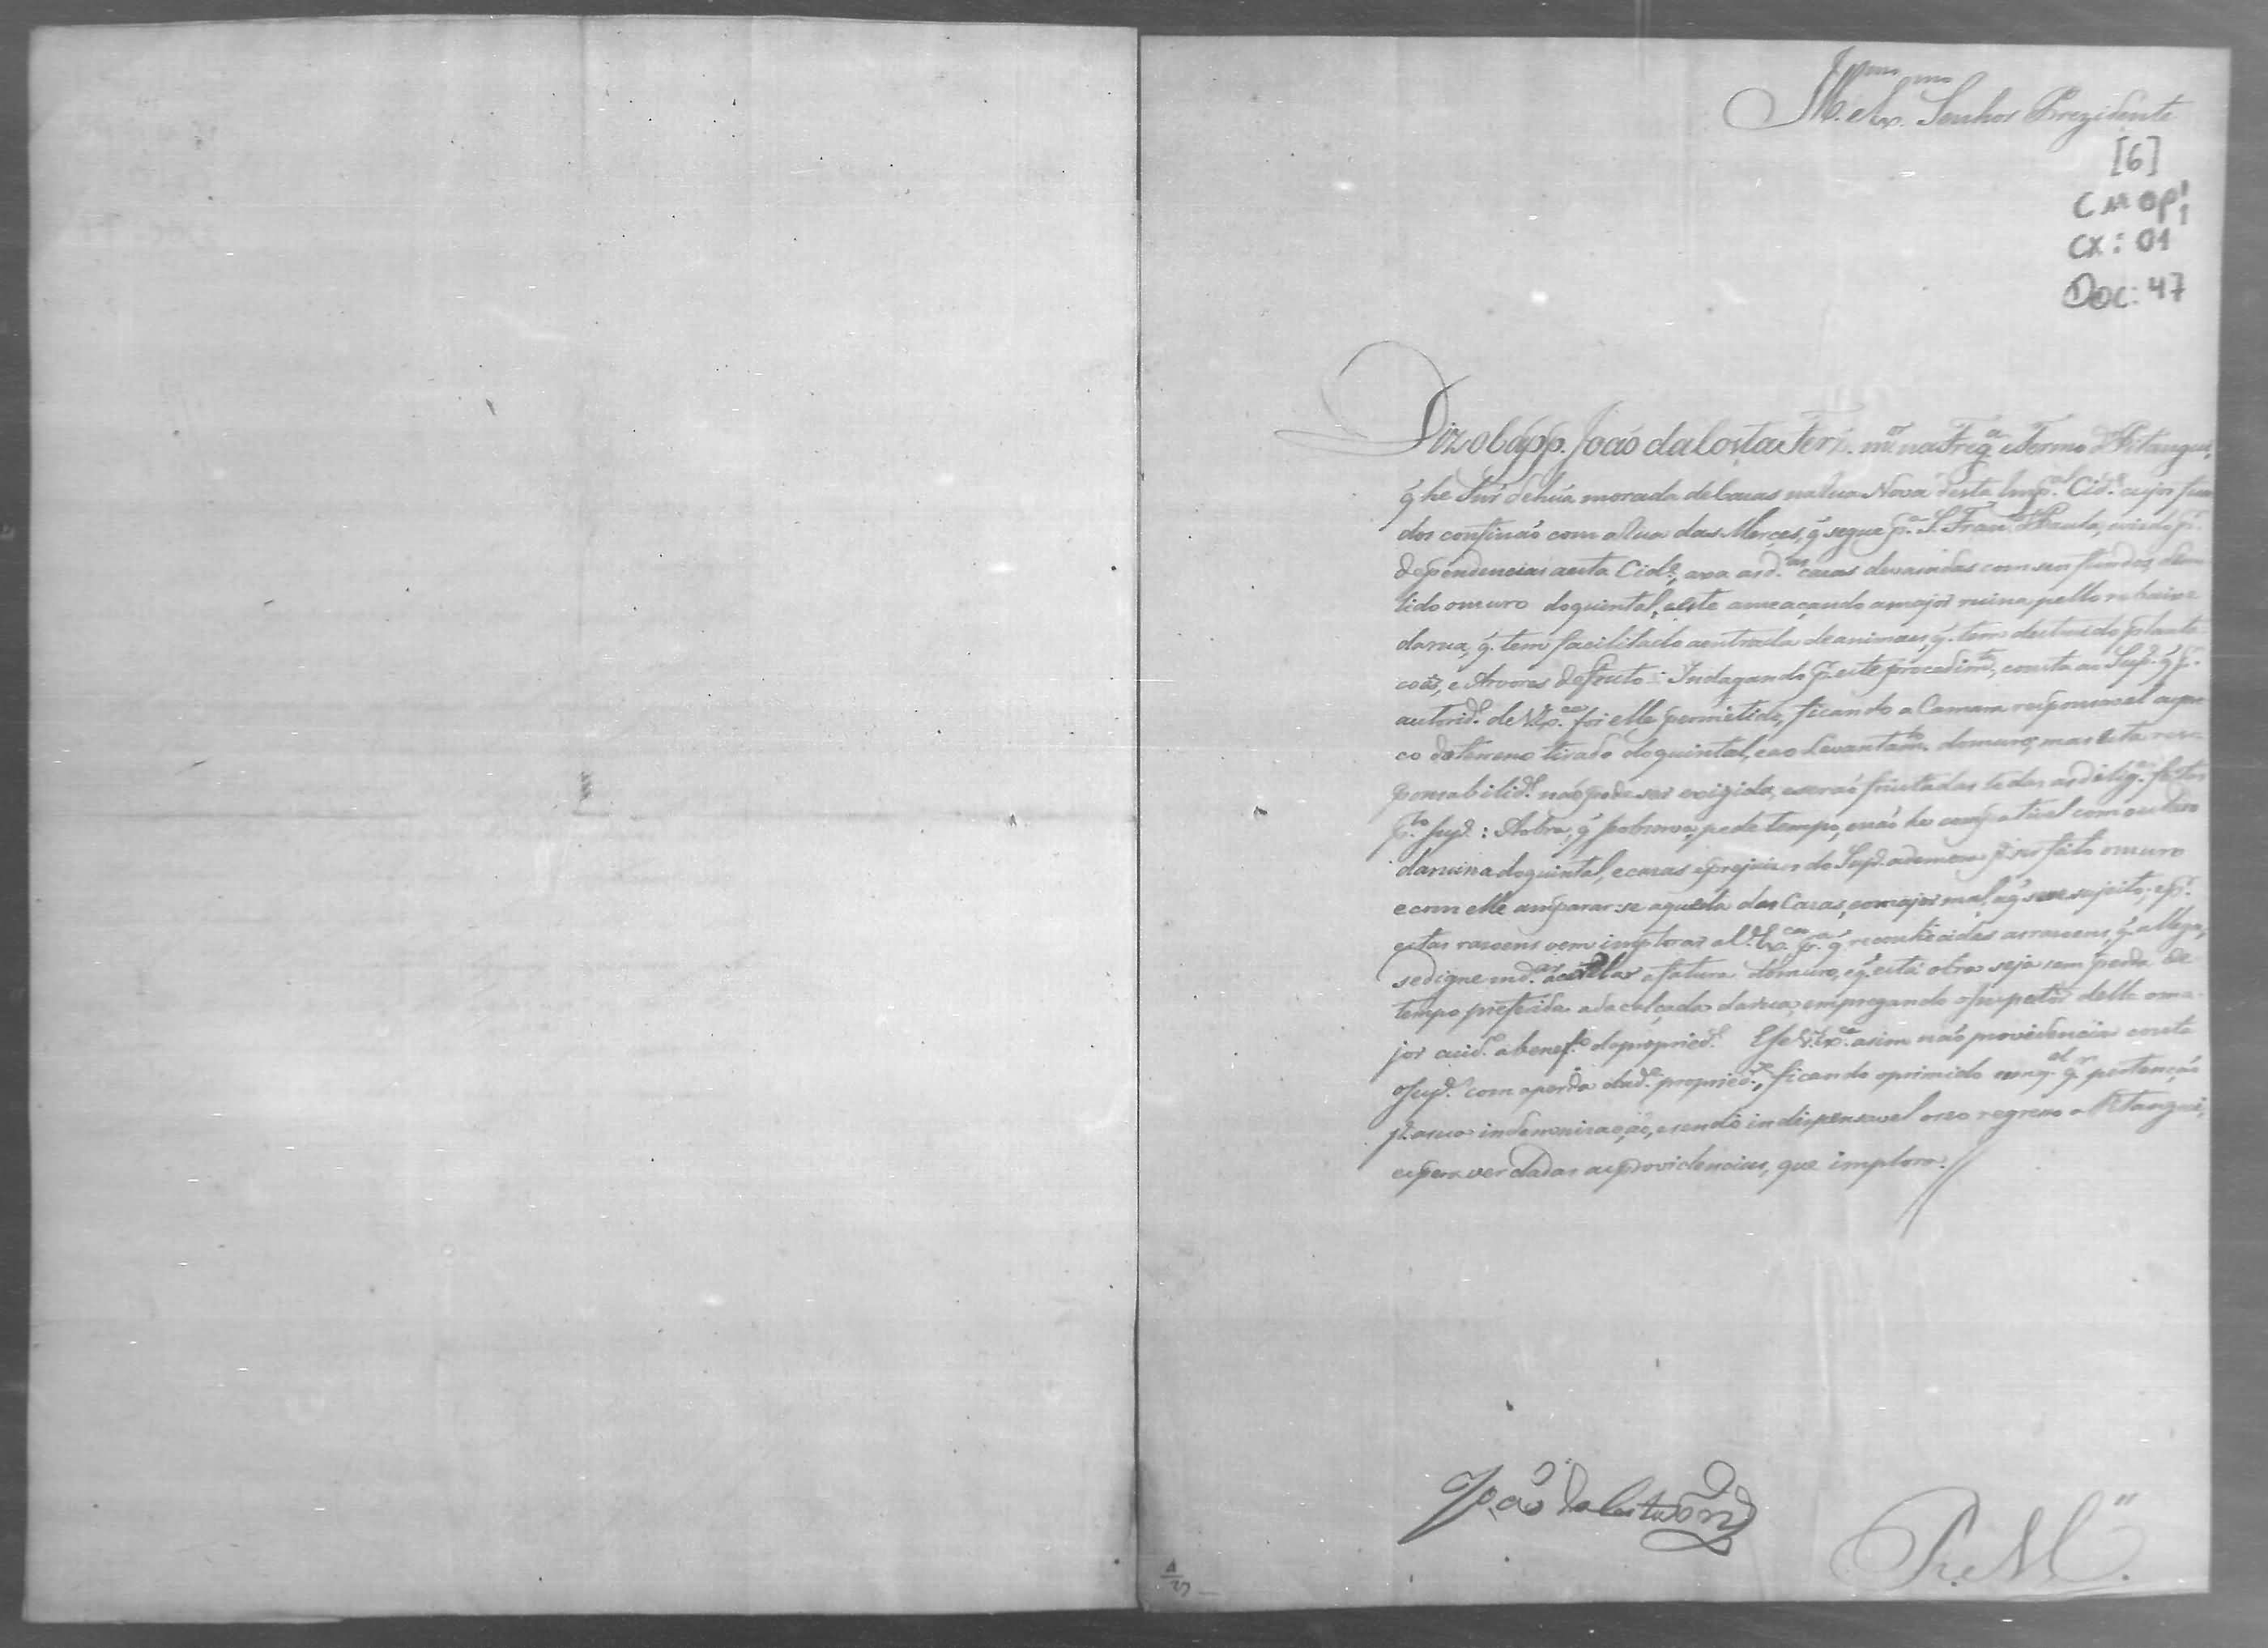 Ill.mo e Ex.mo Senhor Prezidente
[6]
CMOP 1
CX: 01
Doc: 47
Diz o Cap.p. João da Costa Ferr.ª m.or na Freg.a e Termo d Pitangui,
q̃ he Snr̃ de hũa morada de Cazas na Rua Nova desta Imp.al Cid.e cujos fun
dos confinaõ com a Rua das Merces, q̃ segue p.a S. Fran.co d Paula, vindo p.r
dependencias a esta Cid.e, axa as d.as cazas devaçadas com seus fundos, demo
lido o muro do quintal, e este ameaçando a major ruina pello rebaixe
da rua, q̃ tem facilitado a entrada de animaes, q̃ tem destruido planta
coẽs, e Arvores de fruto: Indagando p.r este procedim.to, consta ao Sup.e q̃ p.r
autorid.e de V. Ex.cia foi elle permetido, ficando a Camara responsavel ao pre
co do terreno tirado do quintal, e ao levantam.to do muro, mas esta res
ponsabilid.e naõ pode ser exigida, e seraõ frustadas todas as dilig.as feitas
p.lo Sup.e: A obra, q̃ pede tempo, e naõ he compativel com
da ruina do quintal, e cazas e prejuizos do Sup.e a demora p.a ser feito o muro
e com elle amparar-se a queda das Cazas, o major mal, a q̃ sujeito; e p.r
estas razoens vem implorar a V. Ex.cia p.a q̃ reconhecidas as razoens, q̃ allega,
se digne md.ar acodelar a fatura do muro, e q̃ esta obra seja sem perda de
tempo preferida a da calçada da rua, empregando o Inspetor della o ma
jor cuid.o a benef.o da propried.e E se V. Ex.cia asim naõ providencia
o Sup.e com a perda da d.a propried.e, ficando oprimido
p.a sua indemnizaçaõ, e sendo indispensavel o seo regreso a Pitangui,
espera ver dadas as providencias, que implora.//
Joaõ da Costa
E. R. M.ce